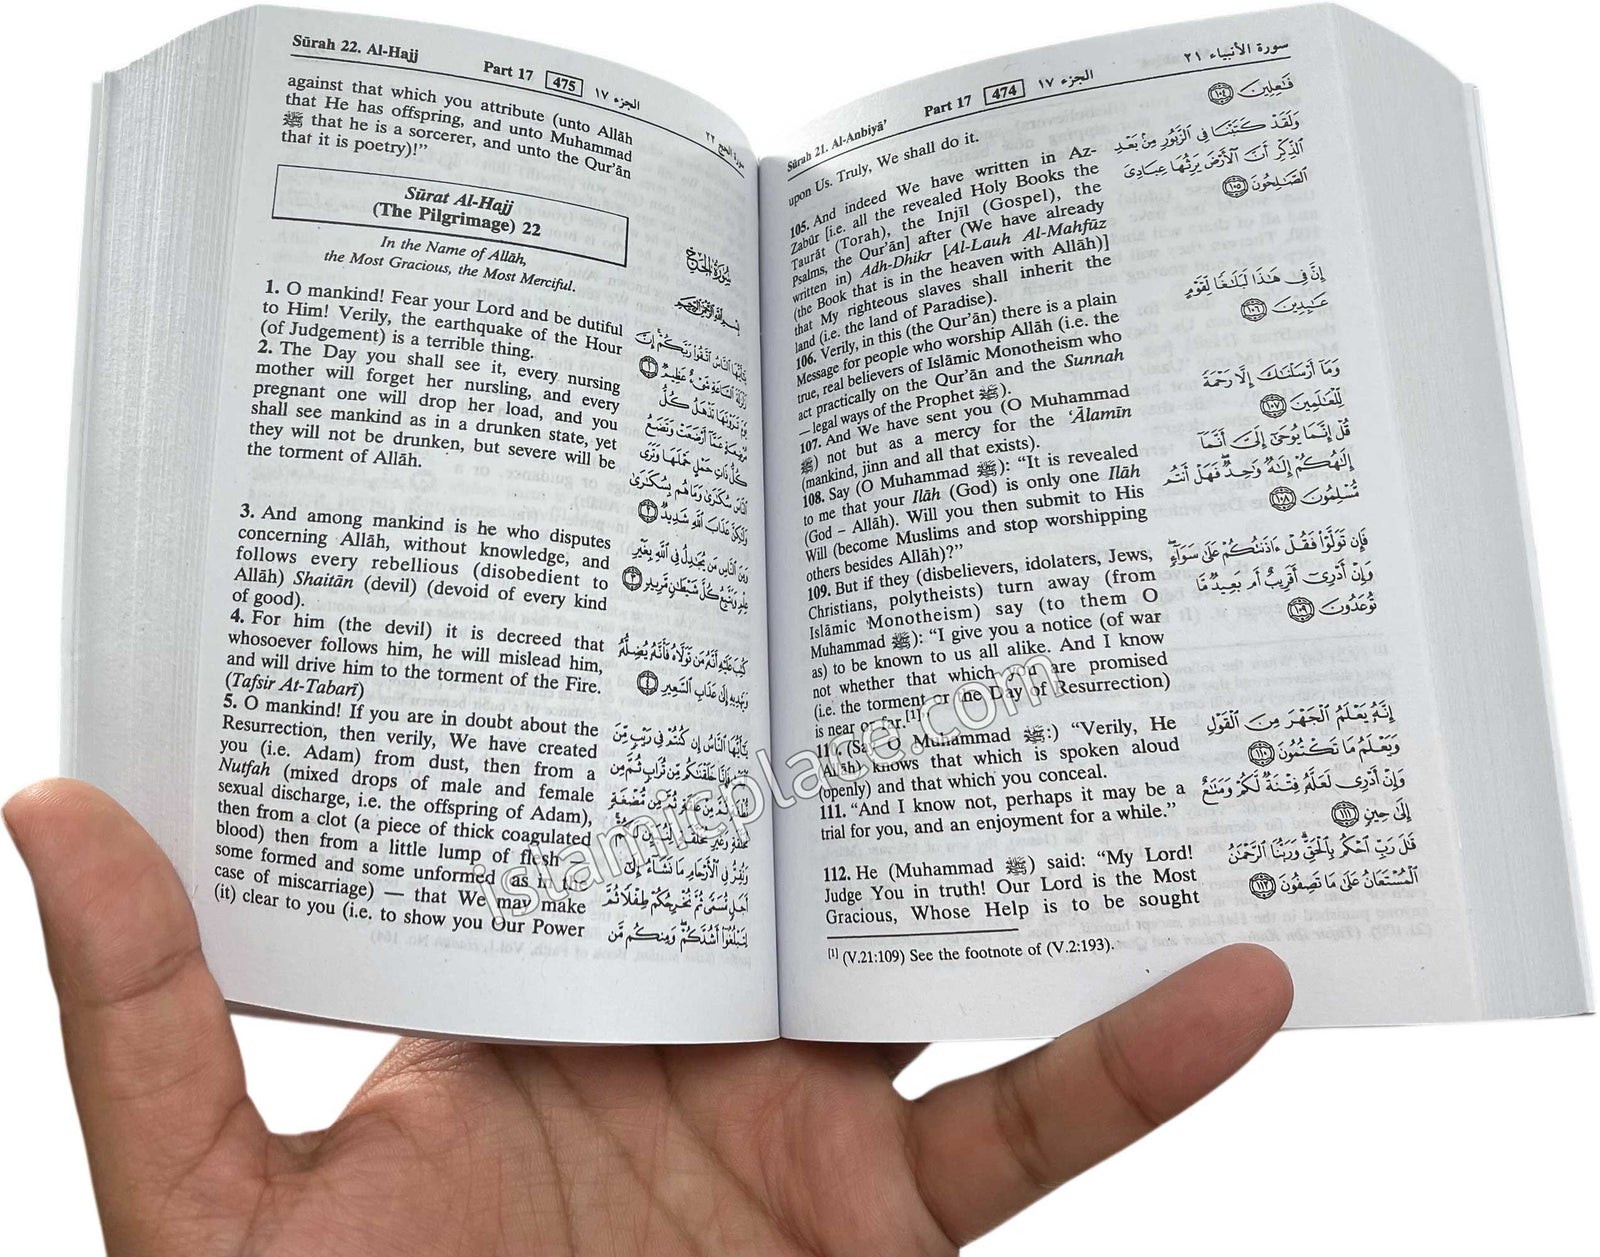 Sūrah 21. Al-Anbiyā’ Part 17 474 الجزء ١٧ سورة الأنبياء ٢١
upon Us. Truly, We shall do it.
105. And indeed We have written in Az-
Zabūr [i.e. all the revealed Holy Books the
Taurāt (Torah), the Injīl (Gospel), the
Psalms, the Qur’ān] after (We have already
written in) Adh-Dhikr [Al-Lauh Al-Mahfūz
(the Book that is in the heaven with Allāh)]
that My righteous slaves shall inherit the
land (i.e. the land of Paradise).
106. Verily, in this (the Qur’ān) there is a plain
Message for people who worship Allāh (i.e. the
true, real believers of Islāmic Monotheism who
act practically on the Qur’ān and the Sunnah
— legal ways of the Prophet ﷺ).
107. And We have sent you (O Muhammad
ﷺ) not but as a mercy for the ‘Ālamīn
(mankind, jinn and all that exists).
108. Say (O Muhammad ﷺ): “It is revealed
to me that your Ilāh (God) is only one Ilāh
(God – Allāh). Will you then submit to His
Will (become Muslims and stop worshipping
others besides Allāh)?”
109. But if they (disbelievers, idolaters, Jews,
Christians, polytheists) turn away (from
Islāmic Monotheism) say (to them O
Muhammad ﷺ): “I give you a notice (of war
as) to be known to us all alike. And I know
not whether that which you are promised
(i.e. the torment or the Day of Resurrection)
is near or far.[1]
110. (Say O Muhammad ﷺ:) “Verily, He
(Allāh) knows that which is spoken aloud
(openly) and that which you conceal.
111. “And I know not, perhaps it may be a
trial for you, and an enjoyment for a while.”
112. He (Muhammad ﷺ) said: “My Lord!
Judge You in truth! Our Lord is the Most
Gracious, Whose Help is to be sought
فَاعِلِينَ ١٠٤
وَلَقَدْ كَتَبْنَا فِى الزَّبُورِ مِنْ بَعْدِ
الذِّكْرِ أَنَّ الْأَرْضَ يَرِثُهَا عِبَادِىَ
الصَّالِحُونَ ١٠٥
إِنَّ فِى هَٰذَا لَبَلَاغًا لِقَوْمٍ
عَابِدِينَ ١٠٦
وَمَا أَرْسَلْنَاكَ إِلَّا رَحْمَةً
لِلْعَالَمِينَ ١٠٧
قُلْ إِنَّمَا يُوحَىٰ إِلَىَّ أَنَّمَا
إِلَٰهُكُمْ إِلَٰهٌ وَاحِدٌ فَهَلْ أَنْتُمْ
مُسْلِمُونَ ١٠٨
فَإِنْ تَوَلَّوْا فَقُلْ ءَاذَنْتُكُمْ عَلَىٰ سَوَاءٍ
وَإِنْ أَدْرِى أَقَرِيبٌ أَمْ بَعِيدٌ مَا
تُوعَدُونَ ١٠٩
إِنَّهُ يَعْلَمُ الْجَهْرَ مِنَ الْقَوْلِ
وَيَعْلَمُ مَا تَكْتُمُونَ ١١٠
وَإِنْ أَدْرِى لَعَلَّهُ فِتْنَةٌ لَكُمْ وَمَتَاعٌ
إِلَىٰ حِينٍ ١١١
قَالَ رَبِّ احْكُمْ بِالْحَقِّ وَرَبُّنَا الرَّحْمَٰنُ
الْمُسْتَعَانُ عَلَىٰ مَا تَصِفُونَ ١١٢
[1] (V.21:109) See the footnote of (V.2:193).
Sūrah 22. Al-Hajj Part 17 475 الجزء ١٧ سورة الحج ٢٢
against that which you attribute (unto Allāh
that He has offspring, and unto Muhammad
ﷺ that he is a sorcerer, and unto the Qur’ān
that it is poetry)!”
Sūrat Al-Hajj
(The Pilgrimage) 22
In the Name of Allāh,
the Most Gracious, the Most Merciful.
1. O mankind! Fear your Lord and be dutiful
to Him! Verily, the earthquake of the Hour
(of Judgement) is a terrible thing.
2. The Day you shall see it, every nursing
mother will forget her nursling, and every
pregnant one will drop her load, and you
shall see mankind as in a drunken state, yet
they will not be drunken, but severe will be
the torment of Allāh.
3. And among mankind is he who disputes
concerning Allāh, without knowledge, and
follows every rebellious (disobedient to
Allāh) Shaitān (devil) (devoid of every kind
of good).
4. For him (the devil) it is decreed that
whosoever follows him, he will mislead him,
and will drive him to the torment of the Fire.
(Tafsir At-Tabarī)
5. O mankind! If you are in doubt about the
Resurrection, then verily, We have created
you (i.e. Adam) from dust, then from a
Nutfah (mixed drops of male and female
sexual discharge, i.e. the offspring of Adam),
then from a clot (a piece of thick coagulated
blood) then from a little lump of flesh —
some formed and some unformed (as in the
case of miscarriage) — that We may make
(it) clear to you (i.e. to show you Our Power
سُورَةُ الْحَجِّ
بِسْمِ اللَّهِ الرَّحْمَٰنِ الرَّحِيمِ
يَا أَيُّهَا النَّاسُ اتَّقُوا رَبَّكُمْ إِنَّ
زَلْزَلَةَ السَّاعَةِ شَىْءٌ عَظِيمٌ ١
يَوْمَ تَرَوْنَهَا تَذْهَلُ كُلُّ
مُرْضِعَةٍ عَمَّا أَرْضَعَتْ وَتَضَعُ
كُلُّ ذَاتِ حَمْلٍ حَمْلَهَا وَتَرَى
النَّاسَ سُكَارَىٰ وَمَا هُمْ بِسُكَارَىٰ
وَلَٰكِنَّ عَذَابَ اللَّهِ شَدِيدٌ ٢
وَمِنَ النَّاسِ مَنْ يُجَادِلُ فِى اللَّهِ بِغَيْرِ
عِلْمٍ وَيَتَّبِعُ كُلَّ شَيْطَانٍ مَرِيدٍ ٣
كُتِبَ عَلَيْهِ أَنَّهُ مَنْ تَوَلَّاهُ فَأَنَّهُ يُضِلُّهُ
وَيَهْدِيهِ إِلَىٰ عَذَابِ السَّعِيرِ ٤
يَا أَيُّهَا النَّاسُ إِنْ كُنْتُمْ فِى رَيْبٍ مِنَ
الْبَعْثِ فَإِنَّا خَلَقْنَاكُمْ مِنْ تُرَابٍ ثُمَّ مِنْ
نُطْفَةٍ ثُمَّ مِنْ عَلَقَةٍ ثُمَّ مِنْ مُضْغَةٍ
مُخَلَّقَةٍ وَغَيْرِ مُخَلَّقَةٍ لِنُبَيِّنَ لَكُمْ
وَنُقِرُّ فِى الْأَرْحَامِ مَا نَشَاءُ إِلَىٰ
أَجَلٍ مُسَمًّى ثُمَّ نُخْرِجُكُمْ طِفْلًا ثُمَّ
لِتَبْلُغُوا أَشُدَّكُمْ وَمِنْكُمْ مَنْ
islamicplace.com